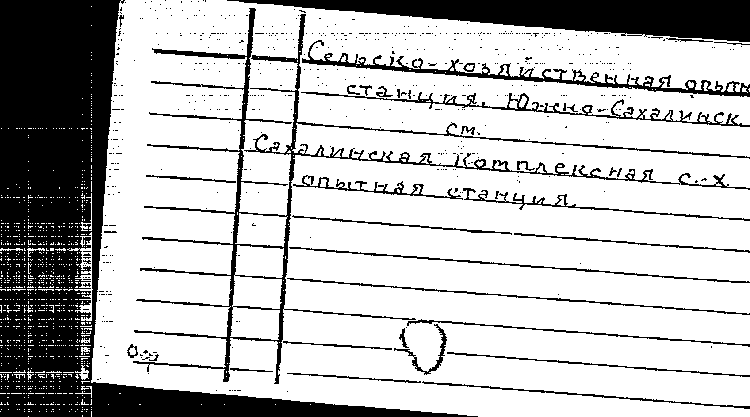 Сельско-хозяйственная опытн
станция. Южно-Сахалинск
см.
Сахалинская Комплексная с.-х
опытная станция.